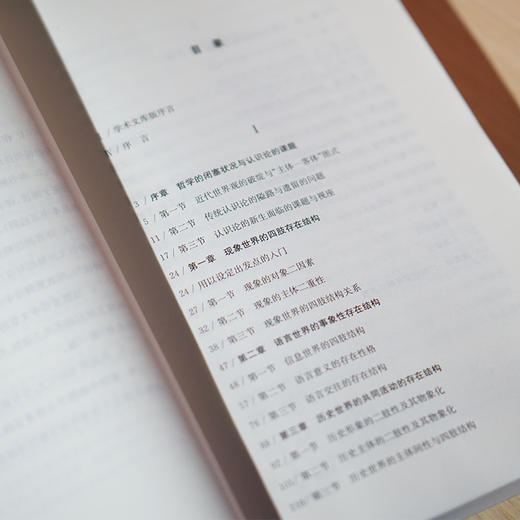 目 录
/ 学术文库版序言
/ 序 言
I
3 / 序章 哲学的闭塞状况与认识论的课题
5 / 第一节 近代世界观的破绽与“主体—客体”图式
11 / 第二节 传统认识论的隘路与遗留的问题
17 / 第三节 认识论的新生面临的课题与视座
24 / 第一章 现象世界的四肢存在结构
24 / 用以设定出发点的入门
27 / 第一节 现象的对象二因素
32 / 第二节 现象的主体二重性
38 / 第三节 现象世界的四肢结构关系
47 / 第二章 语言世界的事象性存在结构
48 / 第一节 信息世界的四肢结构
57 / 第二节 语言意义的存在性格
76 / 第三节 语言交往的存在结构
第三章 历史世界的共同活动的存在结构
92 / 第一节 历史形象的二肢性及其物象化
第二节 历史主体的二肢性及其物象化
第三节 历史世界的主体间性与四肢结构